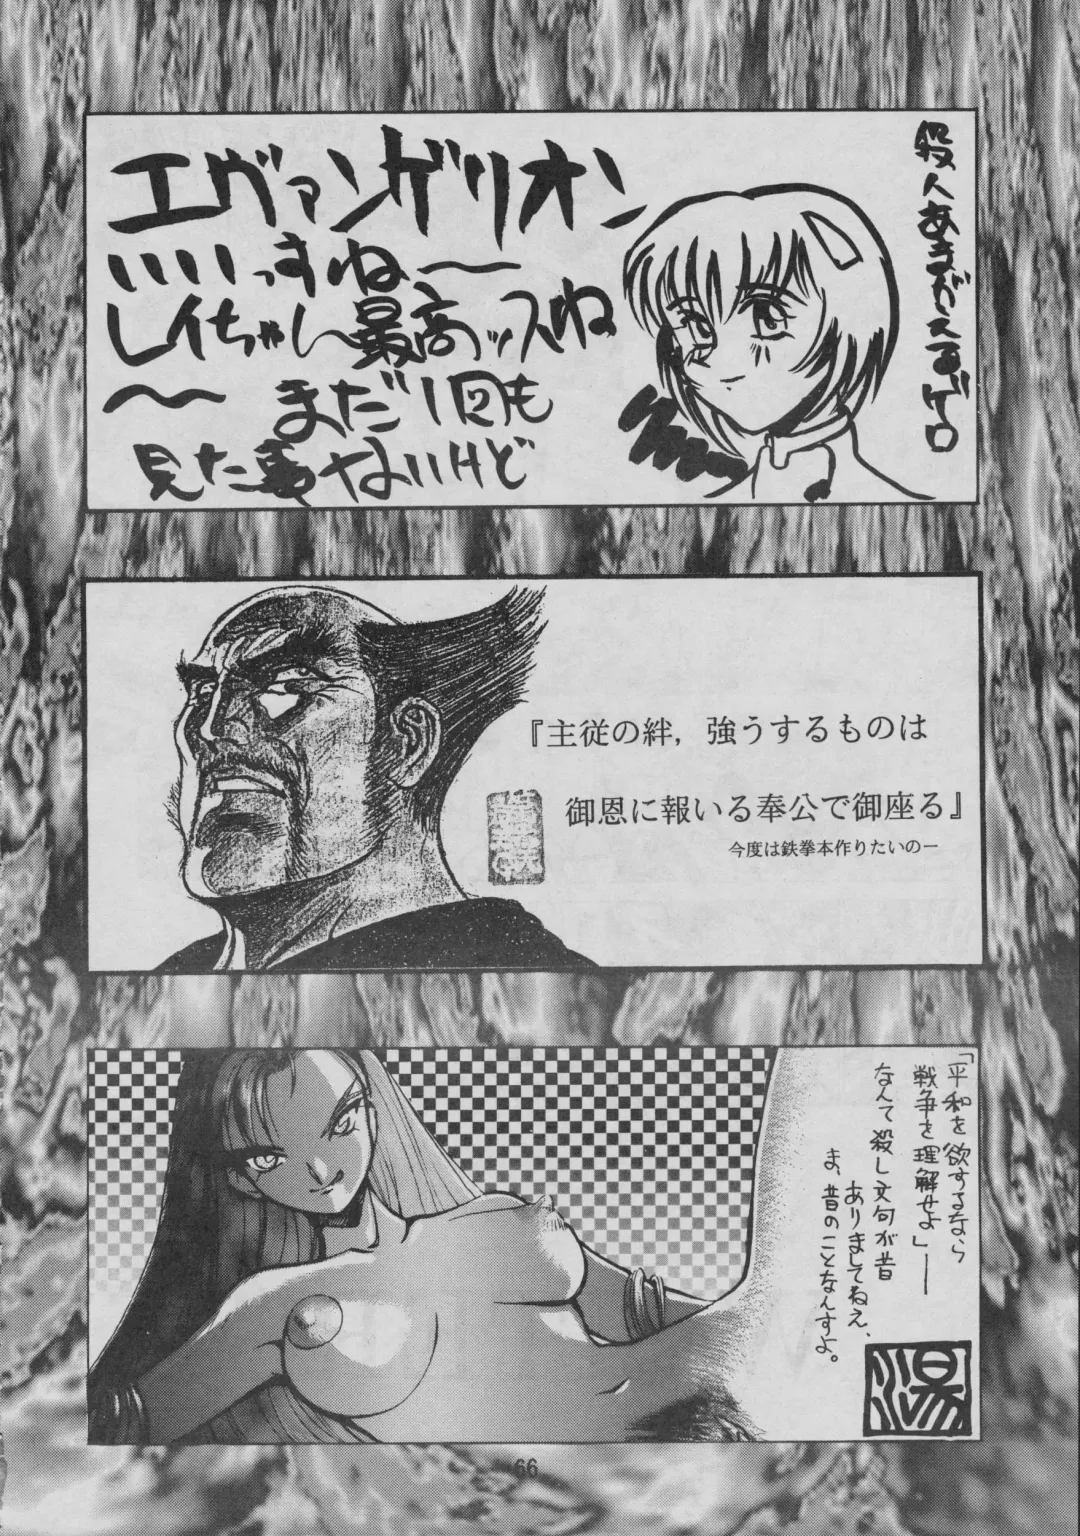 エヴァンゲリオン
いいっすね〜
レイちゃん最高ッスね
〜 まだ1回も
見た事ないけど
殺人あまがえるゲロ
『主従の絆，強うするものは
御恩に報いる奉公で御座る』
今度は鉄拳本作りたいのー
「平和を欲するなら
戦争を理解せよ」——
なんて殺し文句が昔
ありましてねえ、
ま、昔のことなんすよ。
湯
66